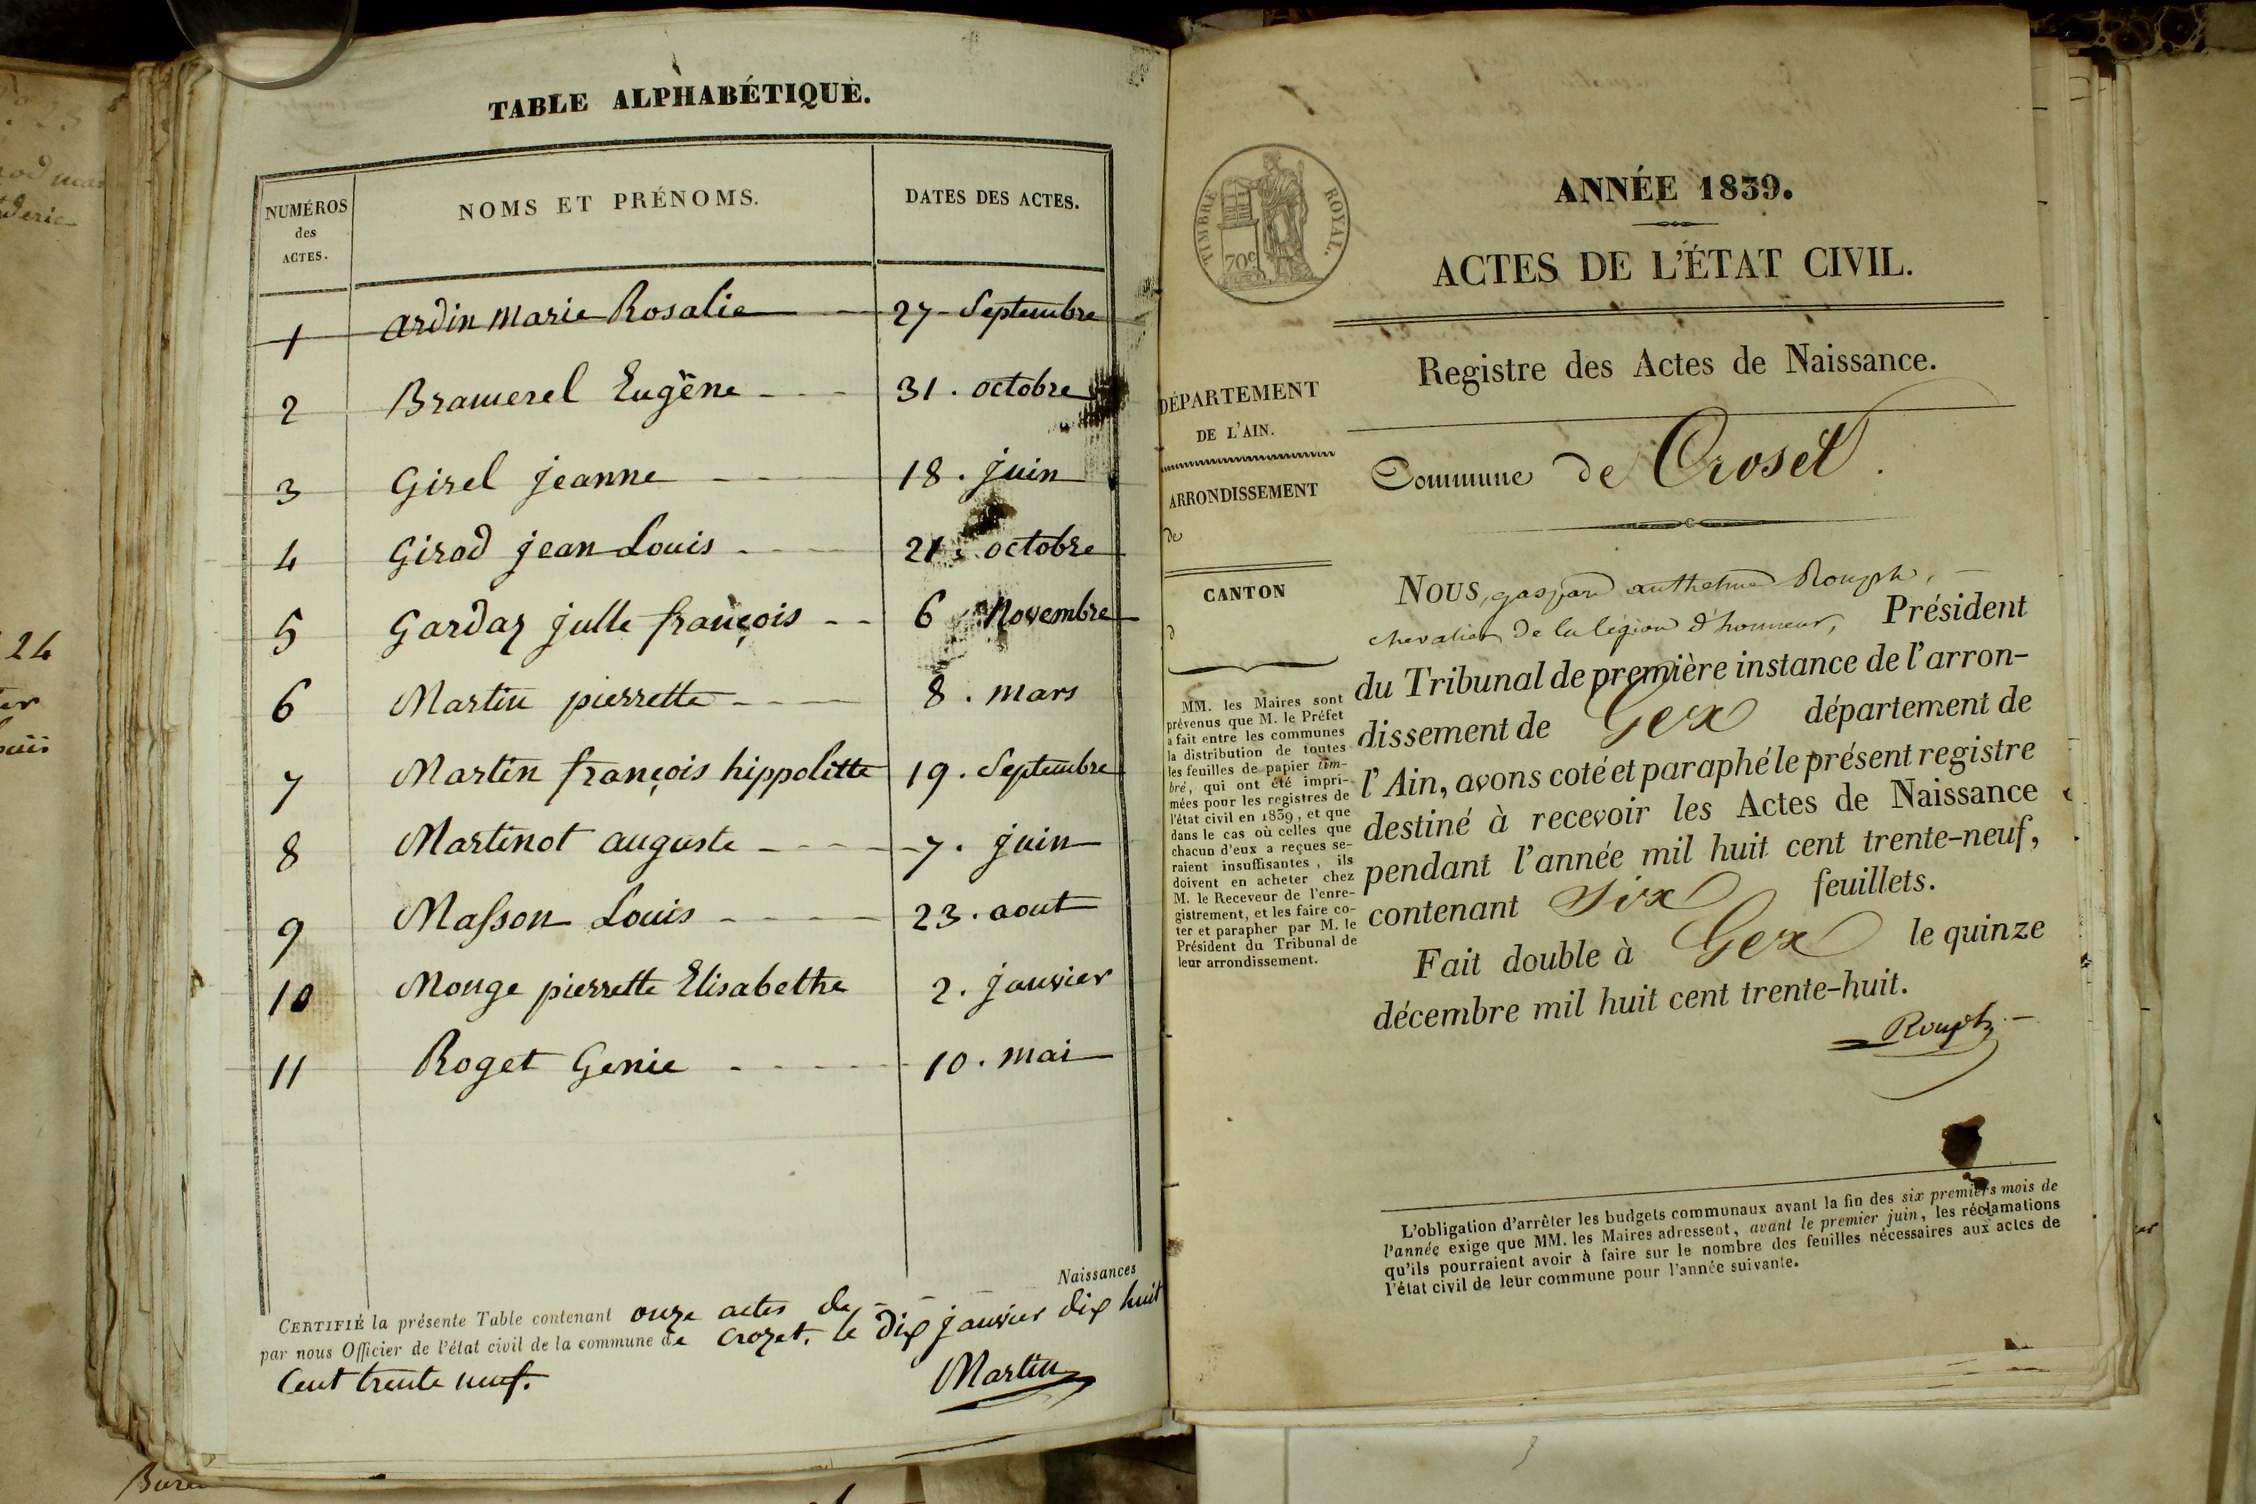 TABLE ALPHABÉTIQUE.
NUMÉROS des ACTES. NOMS ET PRÉNOMS. DATES DES ACTES.
1 Ardin Marie Rosalie 27 Septembre
2 Bramerel Eugène 31. octobre
3 Girel jeanne 18. juin
4 Girod jean Louis 21. octobre
5 Gardaz julle françois 6 Novembre
6 Martin pierrette 8. mars
7 Martin françois hippolitte 19. Septembre
8 Martinot auguste 7. juin
9 Masson Louis 23. aout
10 Monge pierrette Elisabethe 2. janvier
11 Roget Genie 10. mai
Naissances
CERTIFIÉ la présente Table contenant onze actes de
par nous Officier de l'état civil de la commune de Crozet. le dix janvier dix huit
Cent trente neuf.
Martin
TIMBRE ROYAL.
70c
ANNÉE 1839.
ACTES DE L'ÉTAT CIVIL.
Registre des Actes de Naissance.
Commune de Croset.
DÉPARTEMENT
DE L'AIN.
ARRONDISSEMENT
de
CANTON
d
MM. les Maires sont
prévenus que M. le Préfet
a fait entre les communes
la distribution de toutes
les feuilles de papier tim-
bré, qui ont été impri-
mées pour les registres de
l'état civil en 1839, et que
dans le cas où celles que
chacun d'eux a reçues se-
raient insuffisantes, ils
doivent en acheter chez
M. le Receveur de l'enre-
gistrement, et les faire co-
ter et parapher par M. le
Président du Tribunal de
leur arrondissement.
NOUS, gaspard anthelme Rouph,
chevalier de la légion d'honneur, Président
du Tribunal de première instance de l'arron-
dissement de Gex département de
l'Ain, avons coté et paraphé le présent registre
destiné à recevoir les Actes de Naissance
pendant l'année mil huit cent trente-neuf,
contenant Six feuillets.
Fait double à Gex le quinze
décembre mil huit cent trente-huit.
Rouph
L'obligation d'arrêter les budgets communaux avant la fin des six premiers mois de
l'année exige que MM. les Maires adressent, avant le premier juin, les réclamations
qu'ils pourraient avoir à faire sur le nombre des feuilles nécessaires aux actes de
l'état civil de leur commune pour l'année suivante.